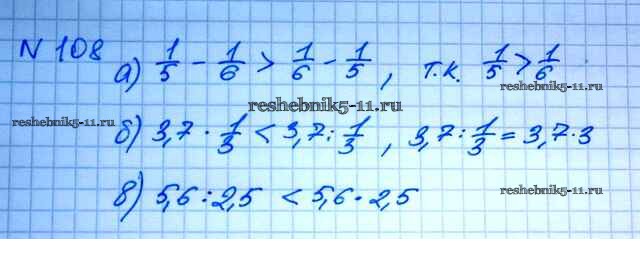 N 108
а) 1/5 - 1/6 > 1/6 - 1/5 , т.к. 1/5 > 1/6
reshebnik5-11.ru
reshebnik5-11.ru
reshebnik5-11.ru
б) 3,7 · 1/3 < 3,7 : 1/3 , 3,7 : 1/3 = 3,7 · 3
в) 5,6 : 2,5 < 5,6 · 2,5
reshebnik5-11.ru